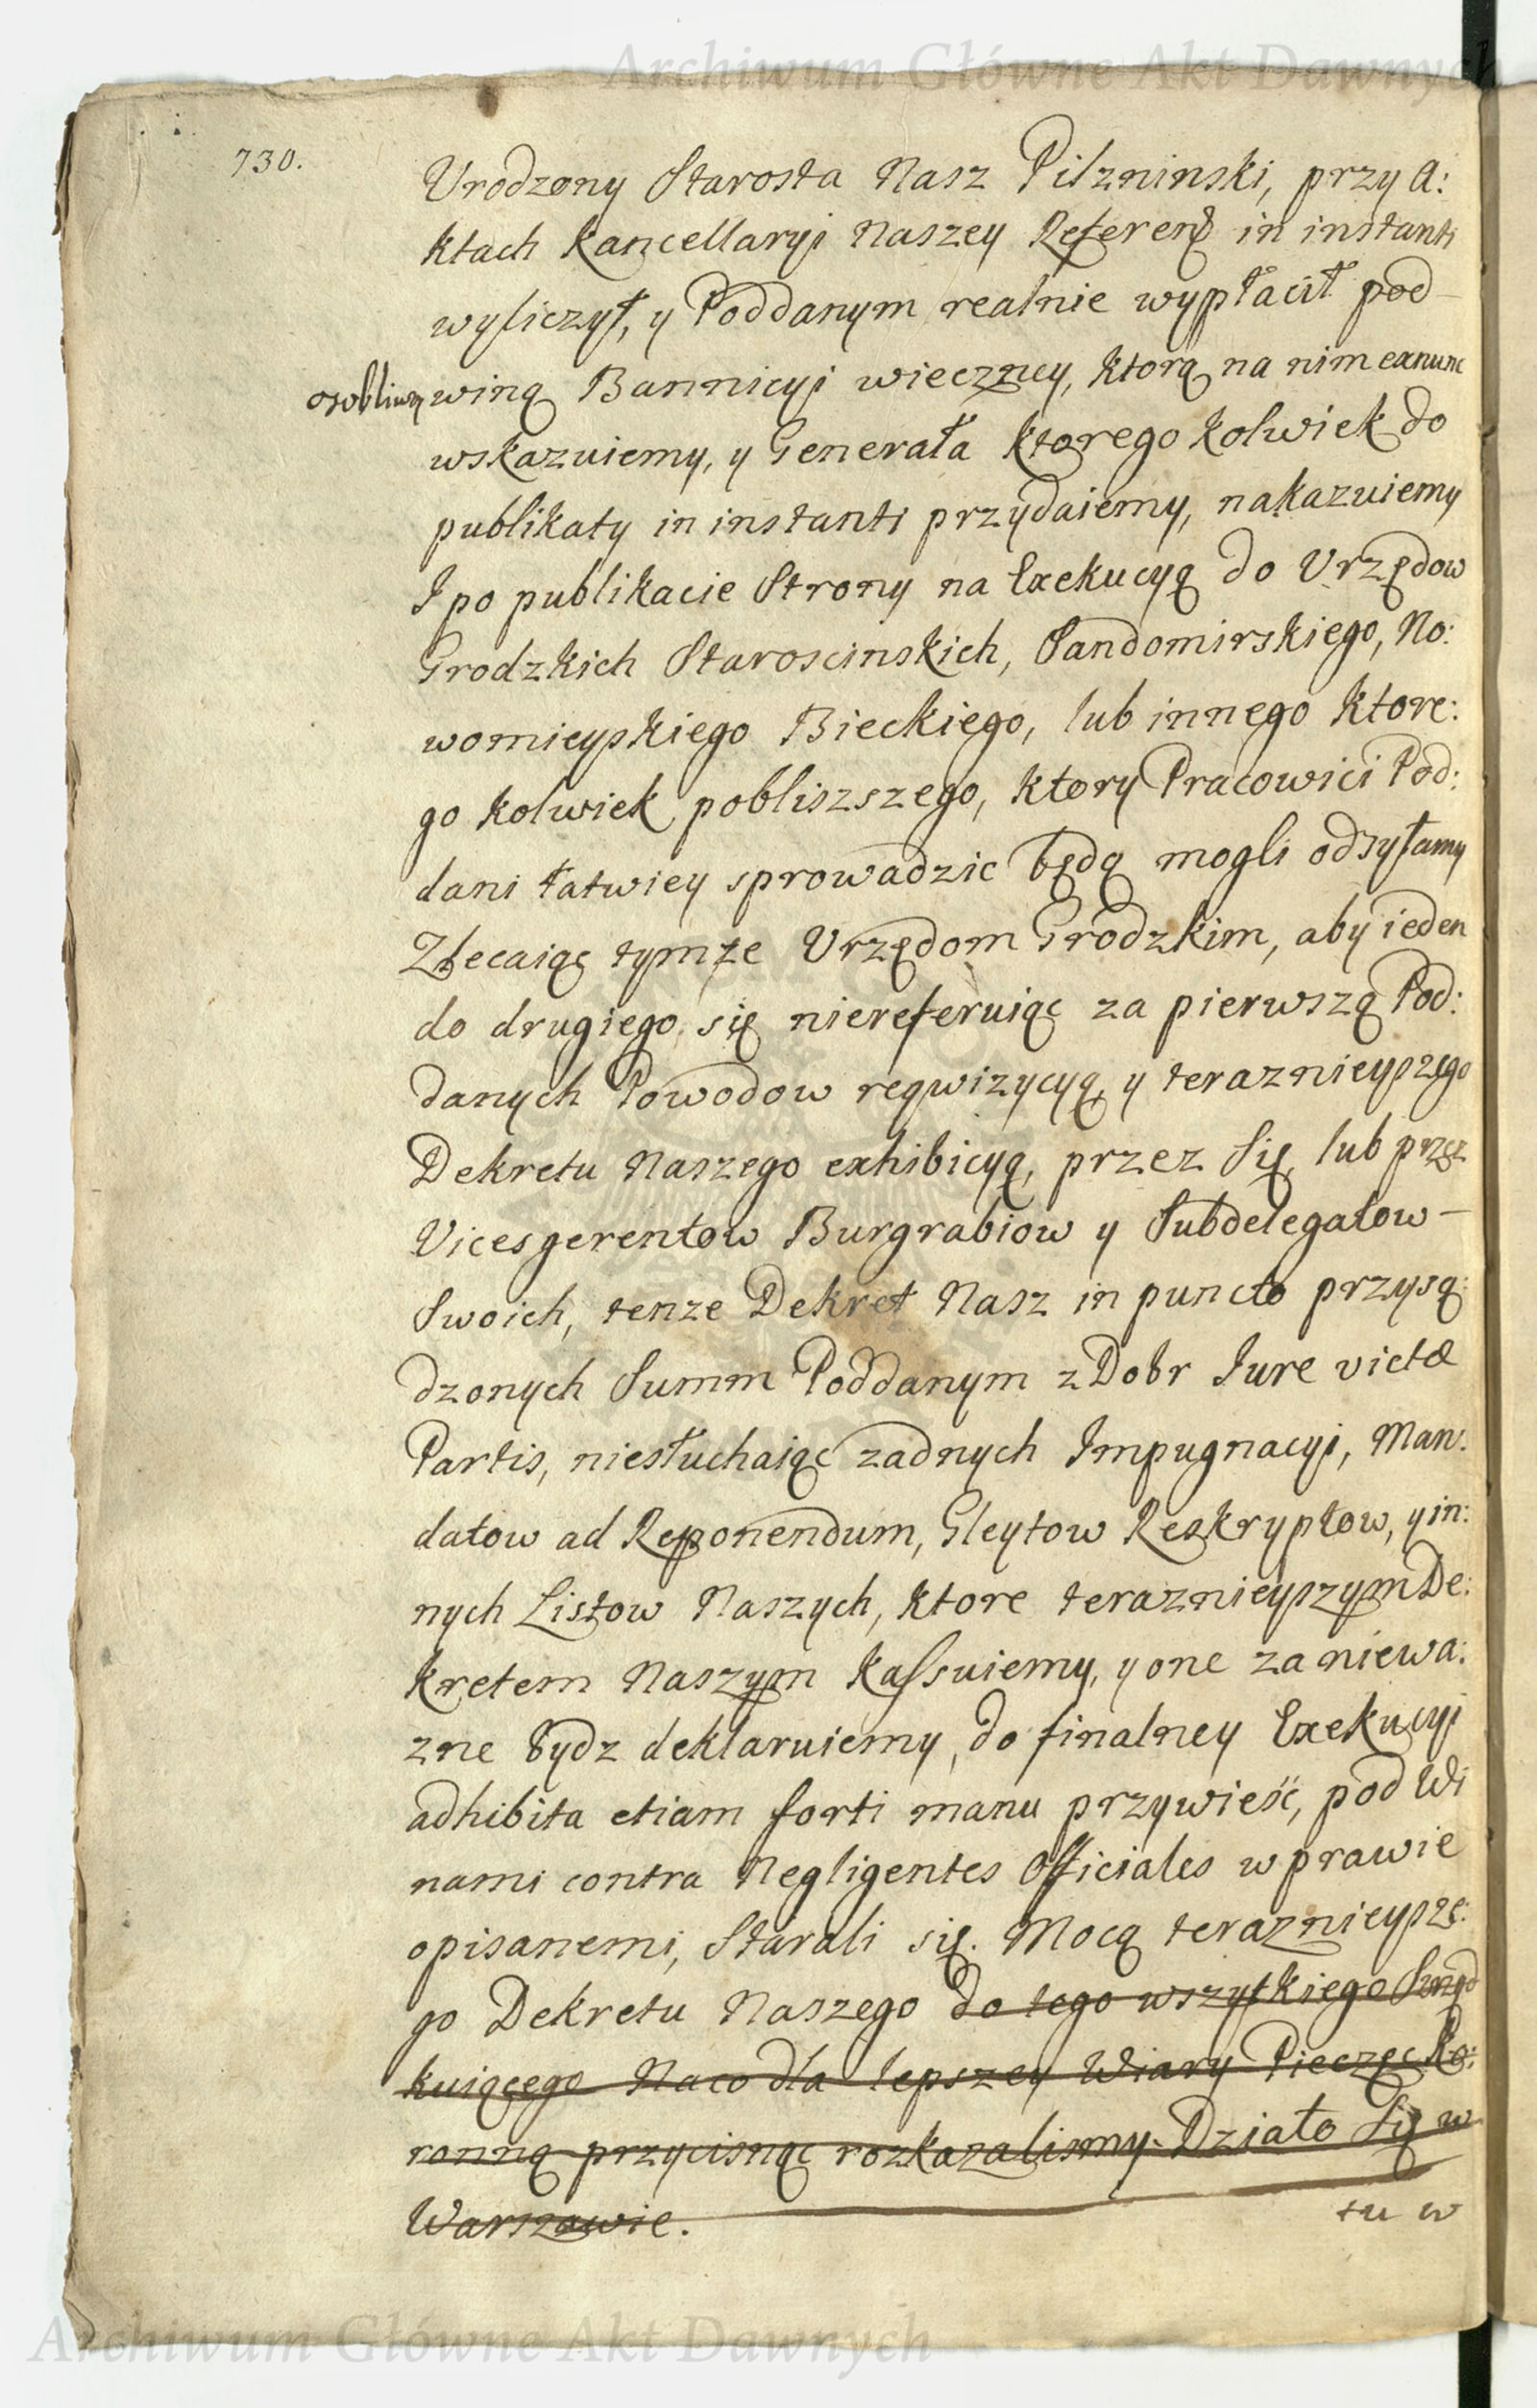 Archiwum Główne Akt Dawnych
730.
Urodzony Starosta Nasz Pilzninski, przy A:
ktach Kancellaryi Naszey Referend in instanti
wyliczył, y Poddanym realnie wypłacił pod
osobliwą winą Bannicyi wieczney, ktorą na nim exnunc
wskazuiemy, y Generała ktorego kolwiek do
publikaty in instanti przydaiemy, nakazuiemy
I po publikacie Strony na Exekucyą do Urzędow
Grodzkich Staroscinskich, Sandomirskiego, No:
womieyskiego Bieckiego, lub innego ktore:
go kolwiek pobliszszego, ktory Pracowici Pod:
dani łatwiey sprowadzic będą mogli odsyłamy
Zlecaiąc tymze Urzędom Grodzkim, aby ieden
do drugiego się niereferuiąc za pierwszą Pod:
danych Powodow reqwizycyą, y teraznieyszego
Dekretu Naszego exhibicyą, przez Się, lub przez
Vicesgerentow Burgrabiow y Subdelegatow
Swoich, tenze Dekret Nasz in puncto przysą:
dzonych Summ Poddanym z Dobr Iure victæ
Partis, niesłuchaiąc zadnych Impugnacyi, Man:
datow ad Reponendum, Gleytow Reskryptow, y in:
nych Listow Naszych, ktore teraznieyszym De:
kretem Naszym kassuiemy, y one za niewa:
zne bydz deklaruiemy, do finalney Exekucyi
adhibita etiam forti manu przywieść, pod Wi
nami contra Negligentes Officiales w prawie
opisanemi, Starali się. Mocą teraznieysze:
go Dekretu Naszego do tego wszytkiego
kuiącego Naco dla lepszey Wiary Pieczęc Ko:
ronną przycisnąc rozkazalismy. Działo Się w
Warszawie.
tu w
Archiwum Główne Akt Dawnych